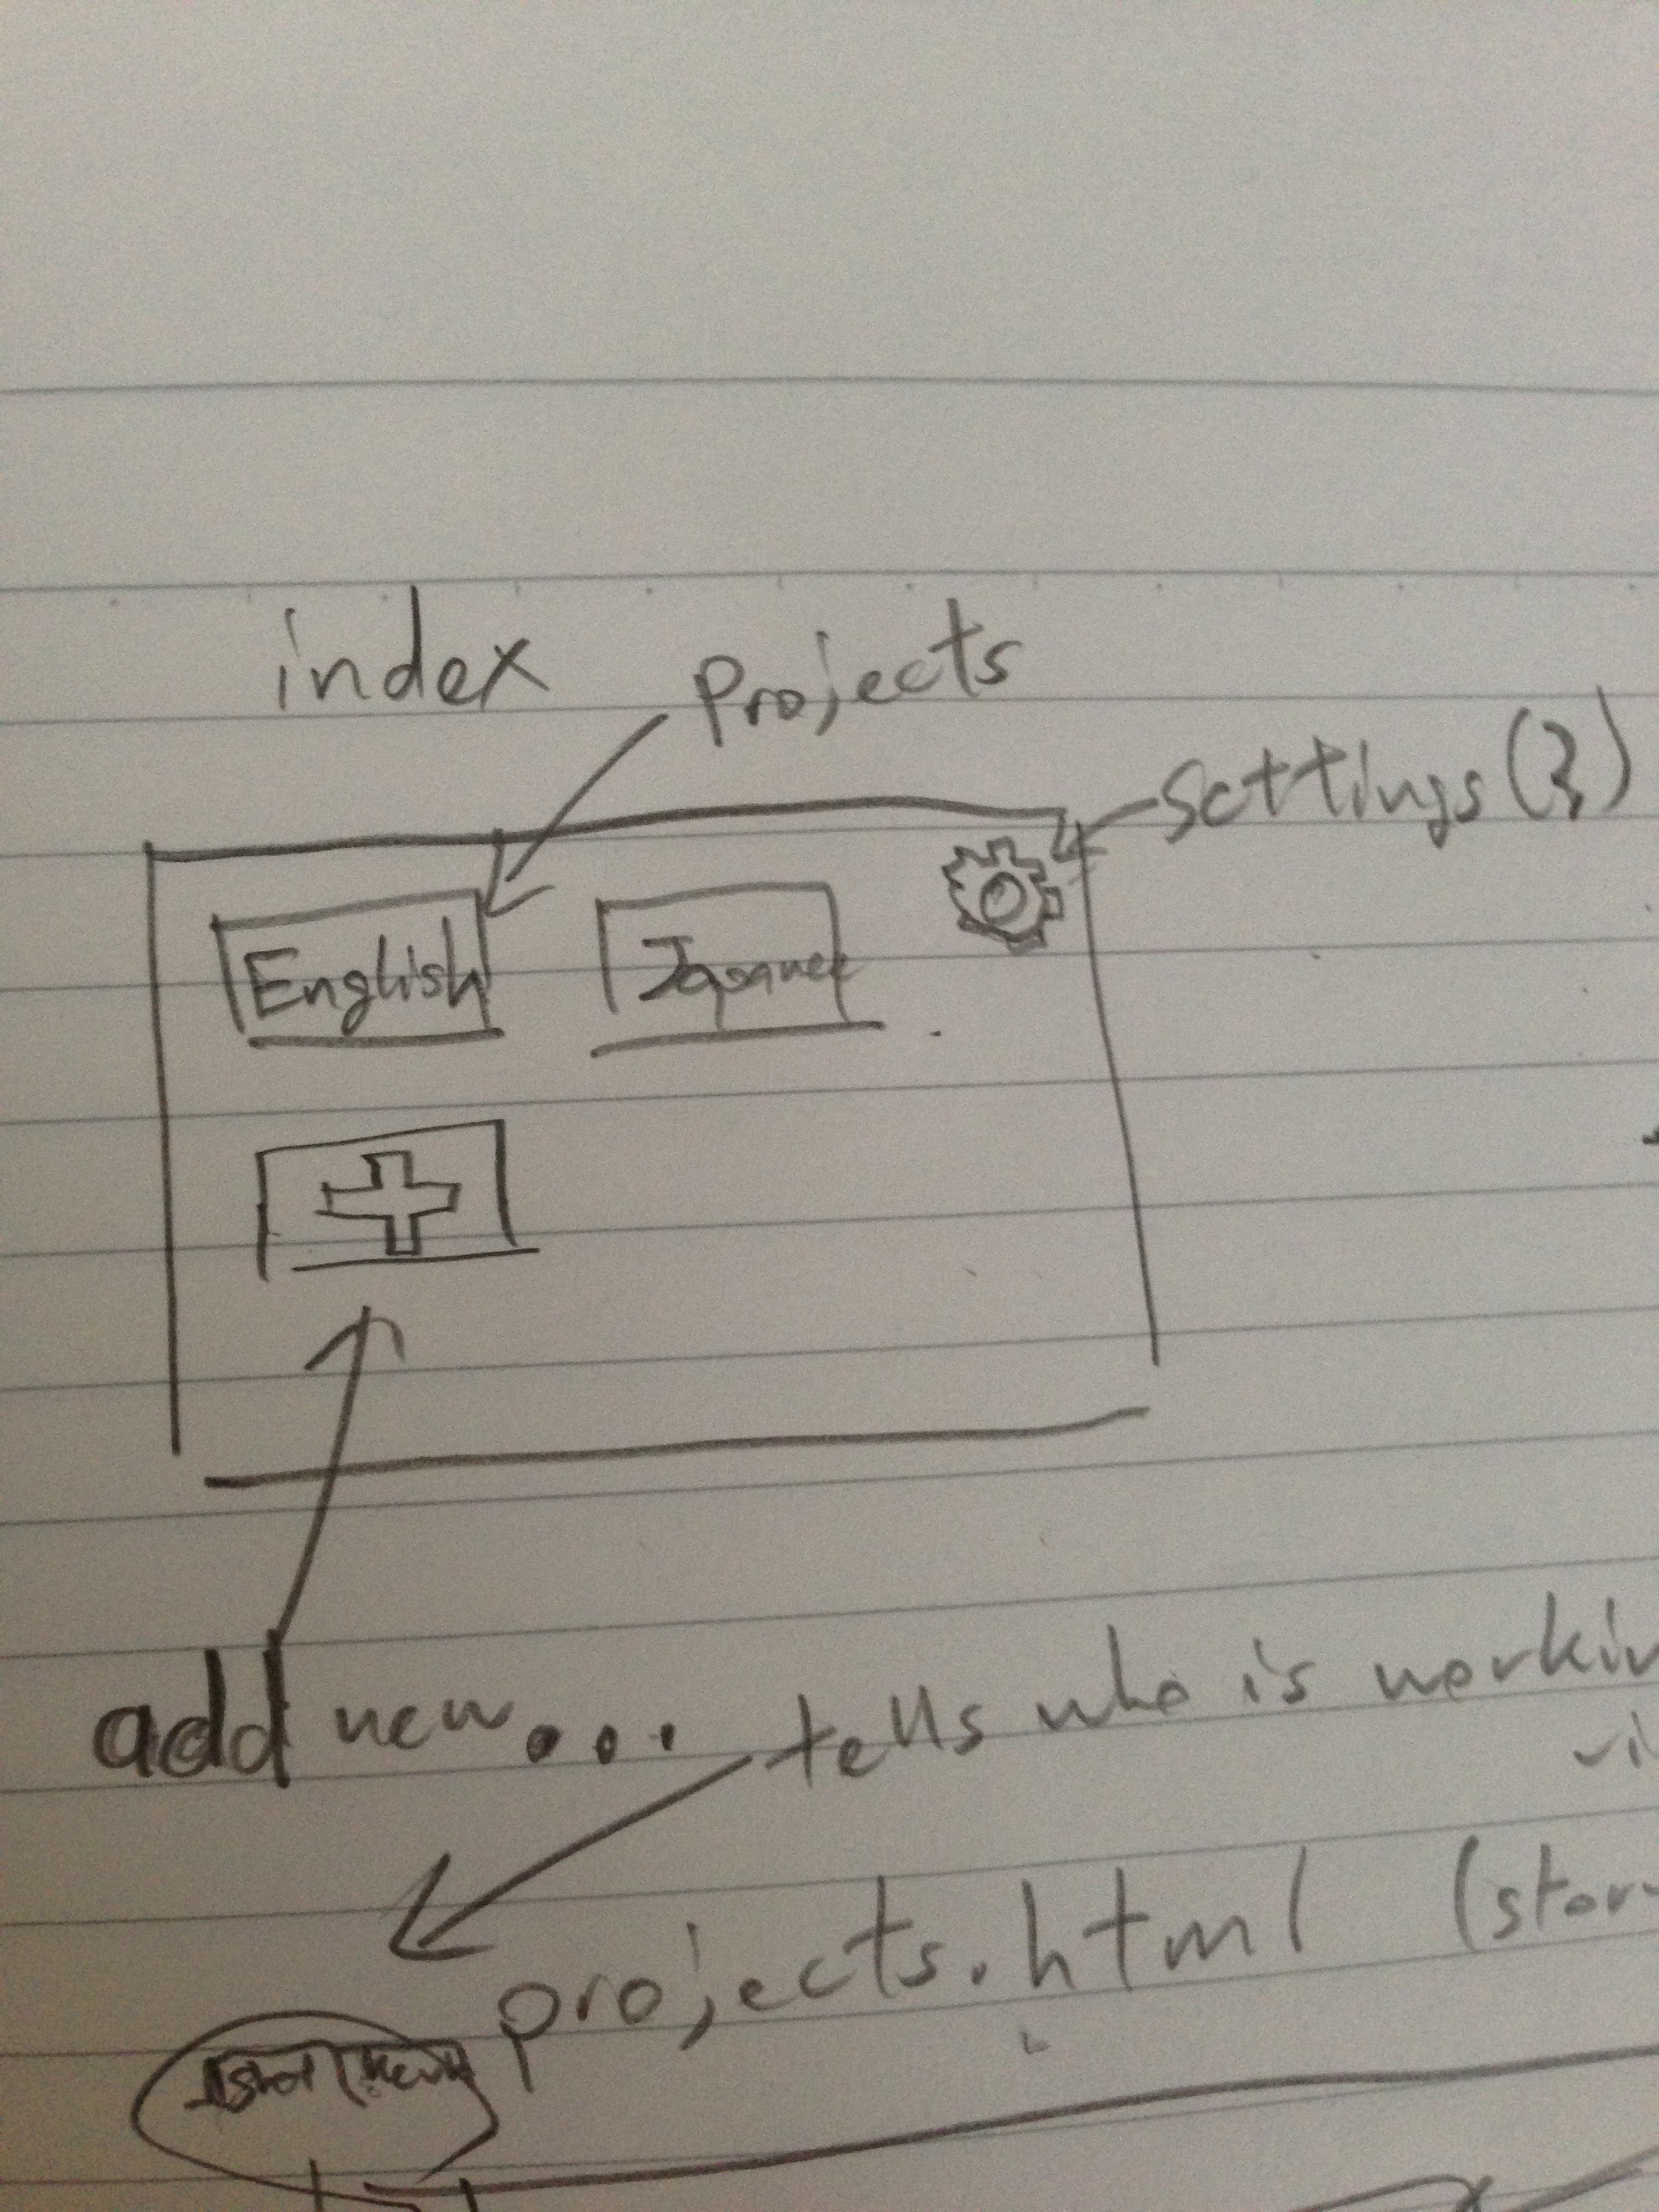 index
projects
settings(?)
English
add new...
tells who is workin
projects.html (stor